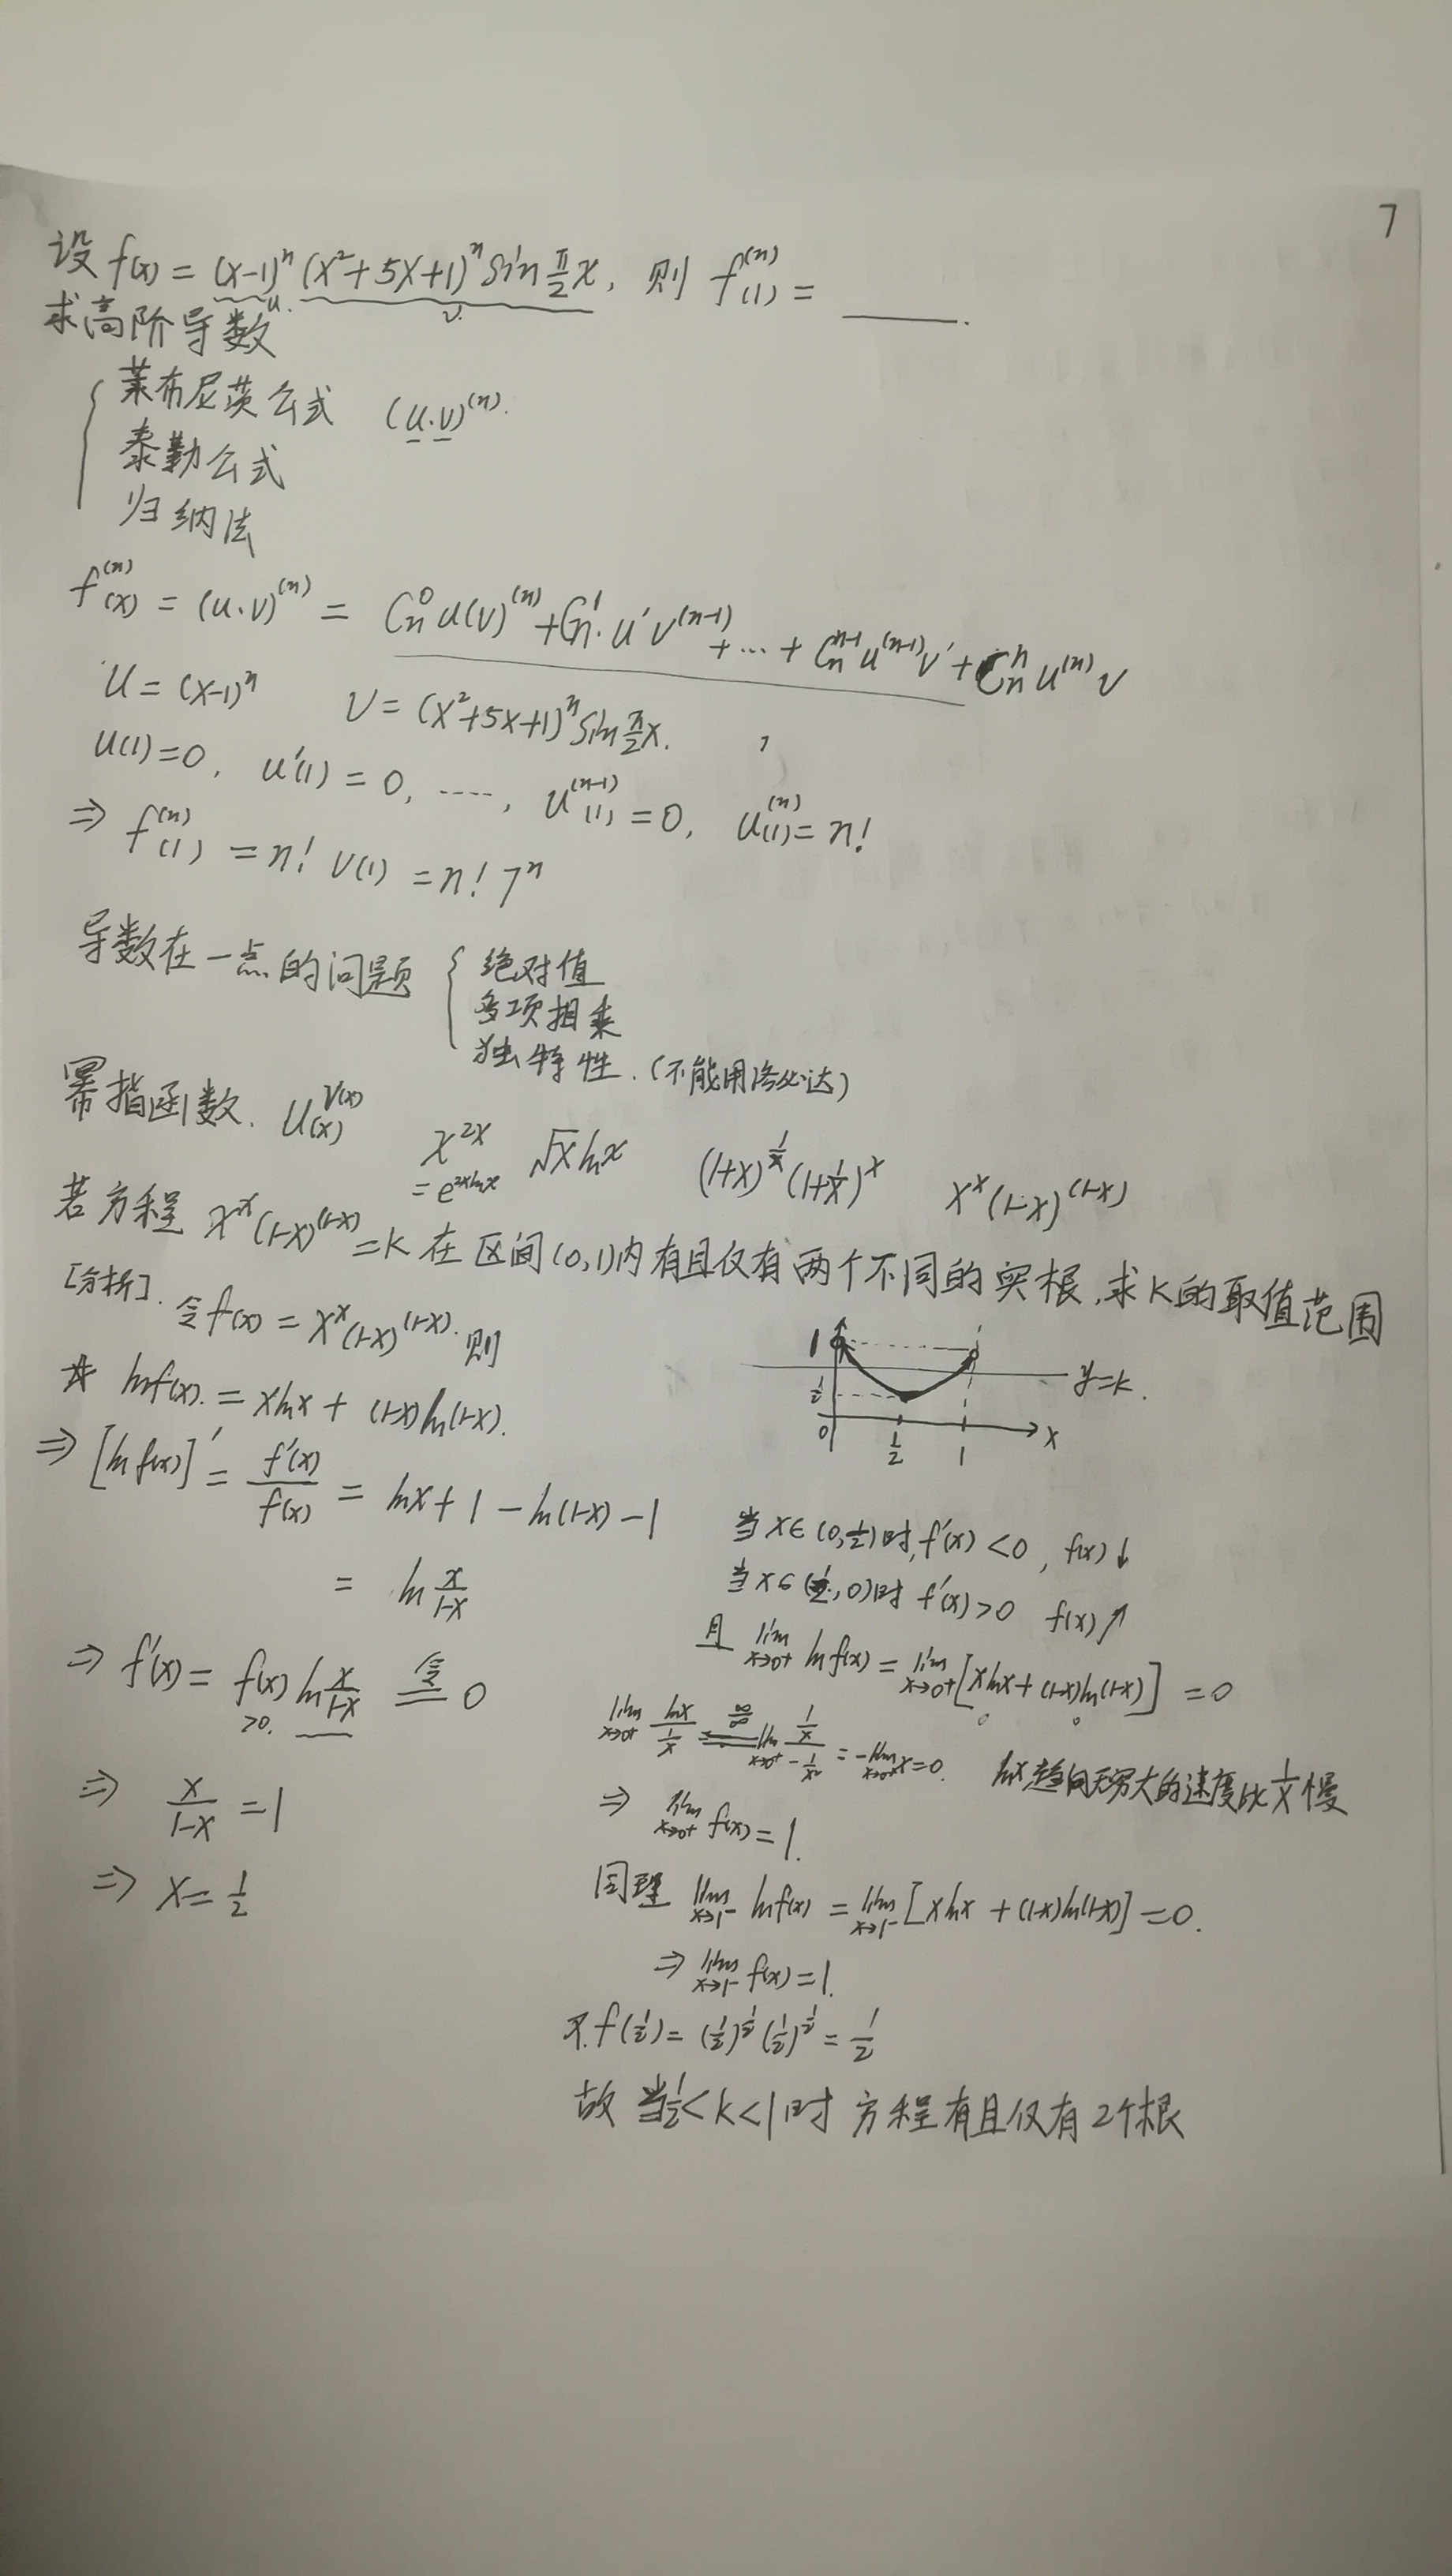 7
设 f(x) = (x-1)ⁿ (x²+5x+1)ⁿ sin π/2 x, 则 f⁽ⁿ⁾(1) = ____.
u. v.
求高阶导数
莱布尼茨公式 (u·v)⁽ⁿ⁾.
泰勒公式
归纳法
f⁽ⁿ⁾(x) = (u·v)⁽ⁿ⁾ = Cn⁰ u(v)⁽ⁿ⁾ + Cn¹·u'v⁽ⁿ⁻¹⁾ + ... + Cnⁿ⁻¹ u⁽ⁿ⁻¹⁾v' + Cnⁿ u⁽ⁿ⁾ v
u = (x-1)ⁿ v = (x²+5x+1)ⁿ sin π/2 x.
u(1)=0, u'(1)=0, ----, u⁽ⁿ⁻¹⁾(1)=0, u⁽ⁿ⁾(1)=n!
⇒ f⁽ⁿ⁾(1) = n! v(1) = n! 7ⁿ
导数在一点的问题 { 绝对值
多项相乘
独特性.(不能用洛必达)
幂指函数. u(x)^v(x) x^2x = e^2xlnx √x lnx (1+x)^1/x (1+1/x)^x x^x(1-x)^(1-x)
若方程 x^x(1-x)^(1-x) = k 在区间(0,1)内有且仅有两个不同的实根,求k的取值范围
[分析]. 令f(x) = x^x(1-x)^(1-x). 则
☆ lnf(x). = xlnx + (1-x)ln(1-x).
⇒ [ln f(x)]' = f'(x)/f(x) = lnx + 1 - ln(1-x) - 1
= ln x/(1-x)
⇒ f'(x) = f(x) ln x/(1-x) 令= 0
>0.
⇒ x/(1-x) = 1
⇒ x = 1/2
1
1/2
0 1/2 1 x
y=k.
当x∈(0,1/2)时,f'(x)<0, f(x)↓
当x∈(1/2,0)时 f'(x)>0 f(x)↗
且 lim x→0⁺ lnf(x) = lim x→0⁺ [xlnx + (1-x)ln(1-x)] = 0
0 0
lim x→0⁺ lnx/(1/x) ∞/∞= lim x→0⁺ (1/x)/(-1/x²) = -lim x→0⁺ x=0. lnx趋向无穷大的速度比1/x慢
⇒ lim x→0⁺ f(x) = 1.
同理 lim x→1⁻ lnf(x) = lim x→1⁻ [xlnx + (1-x)ln(1-x)] = 0.
⇒ lim x→1⁻ f(x) = 1.
又f(1/2) = (1/2)^1/2 (1/2)^1/2 = 1/2
故 当1/2<k<1时 方程有且仅有2个根